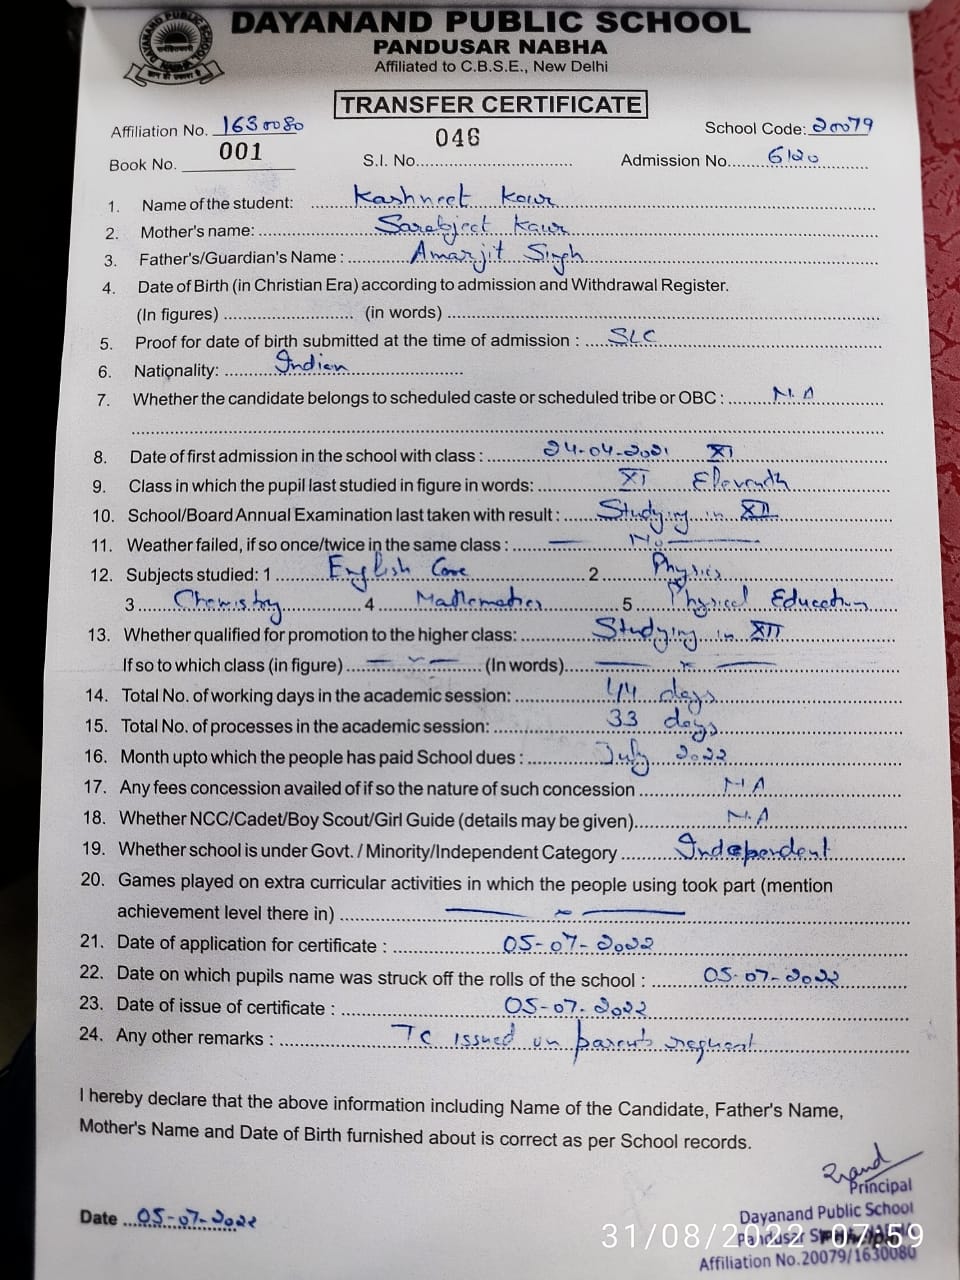 DAYANAND PUBLIC SCHOOL
PANDUSAR NABHA
Affiliated to C.B.S.E., New Delhi
TRANSFER CERTIFICATE
Affiliation No. 1630080 School Code: 20079
Book No. 001 S.I. No. 046 Admission No. 6120
1. Name of the student: Kashneet Kaur
2. Mother's name: Sarabjeet Kaur
3. Father's/Guardian's Name : Amarjit Singh
4. Date of Birth (in Christian Era) according to admission and Withdrawal Register.
(In figures) (in words)
5. Proof for date of birth submitted at the time of admission : SLC
6. Nationality: Indian
7. Whether the candidate belongs to scheduled caste or scheduled tribe or OBC : N.A
8. Date of first admission in the school with class : 24-04-2021 XI
9. Class in which the pupil last studied in figure in words: XI Eleventh
10. School/Board Annual Examination last taken with result : Studying in XII
11. Weather failed, if so once/twice in the same class : — No —
12. Subjects studied: 1 English Core 2 Physics
3 Chemistry 4 Mathematics 5 Physical Education
13. Whether qualified for promotion to the higher class: Studying in XII
If so to which class (in figure) (In words)
14. Total No. of working days in the academic session: 44 days
15. Total No. of processes in the academic session: 33 days
16. Month upto which the people has paid School dues : July 2022
17. Any fees concession availed of if so the nature of such concession NA
18. Whether NCC/Cadet/Boy Scout/Girl Guide (details may be given) N.A
19. Whether school is under Govt. / Minority/Independent Category Independent
20. Games played on extra curricular activities in which the people using took part (mention
achievement level there in)
21. Date of application for certificate : 05-07-2022
22. Date on which pupils name was struck off the rolls of the school : 05-07-2022
23. Date of issue of certificate : 05-07-2022
24. Any other remarks : TC issued on parents request
I hereby declare that the above information including Name of the Candidate, Father's Name,
Mother's Name and Date of Birth furnished about is correct as per School records.
Principal
Date 05-07-2022 Dayanand Public School
31/08/2022 07:59
Pandusar
Affiliation No.20079/1630080